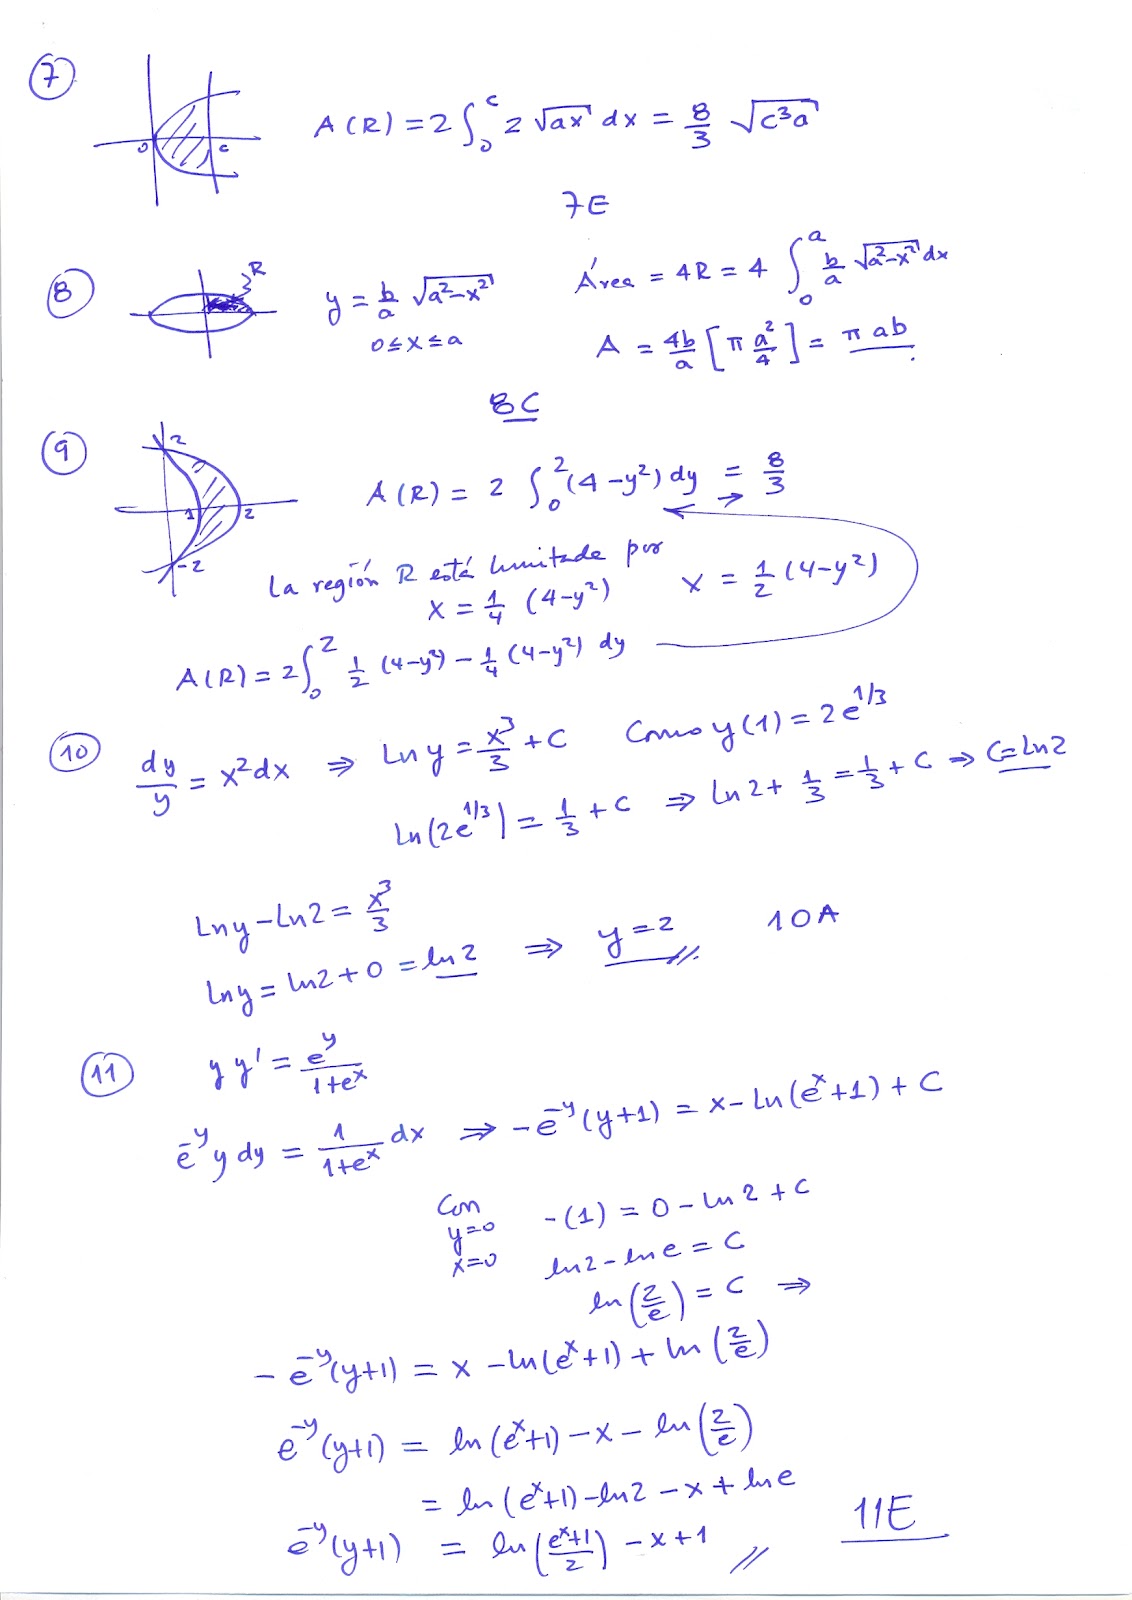 7
0 c
A(R) = 2 ∫₀ᶜ 2 √ax dx = 8/3 √c³a
7E
8
R
y = b/a √a²-x²
0 ≤ x ≤ a
Área = 4R = 4 ∫₀ᵃ b/a √a²-x² dx
A = 4b/a [π a²/4] = π ab
8C
9
2
1 2
-2
A(R) = 2 ∫₀² (4-y²) dy = 8/3
La región R está limitada por
x = 1/4 (4-y²) x = 1/2 (4-y²)
A(R) = 2 ∫₀² 1/2 (4-y²) - 1/4 (4-y²) dy
10
dy/y = x² dx ⇒ Ln y = x³/3 + C Como y(1) = 2e^(1/3)
Ln(2e^(1/3)) = 1/3 + C ⇒ ln 2 + 1/3 = 1/3 + C ⇒ C = ln 2
Lny - Ln2 = x³/3
Lny = ln2 + 0 = ln 2 ⇒ y = 2 10A
11
y y' = e^y/(1+e^x)
e^-y y dy = 1/(1+e^x) dx ⇒ -e^-y (y+1) = x - Ln(e^x+1) + C
Con
y=0
x=0
-(1) = 0 - ln 2 + C
ln2 - ln e = C
ln(2/e) = C ⇒
-e^-y (y+1) = x - ln(e^x+1) + ln(2/e)
e^-y (y+1) = ln(e^x+1) - x - ln(2/e)
= ln(e^x+1) - ln2 - x + ln e
e^-y (y+1) = ln((e^x+1)/2) - x + 1
11E